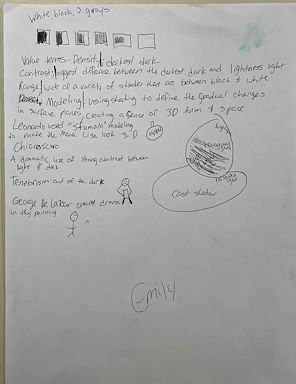 White, black, 3 grays
Value terms - Density darkest dark
Contrast biggest difference between the darkest dark and lightness light
Range of a variety of shades there are between black & white
Modeling using shading to define the gradual changes
in surface planes creating a sense of 3D form & space
Leonardo used "sfumato" modeling
to make the Mona Lisa look 3D
Chiaroscuro
A dramatic use of strong contrast between
light & dark
highlight
Tenebrism out of the dark
reflected light
cast shadow
George De LaTour create drama
in this painting
Emily